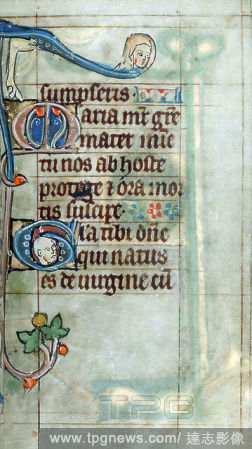 sumpseris
Maria mr gre
mater mie
tu nos ab hoste
protege t ora mor
tis suscipe
Gla tibi dne
qui natus
es de uirgine cu
TPG
www.tpgnews.com/ 達志影像